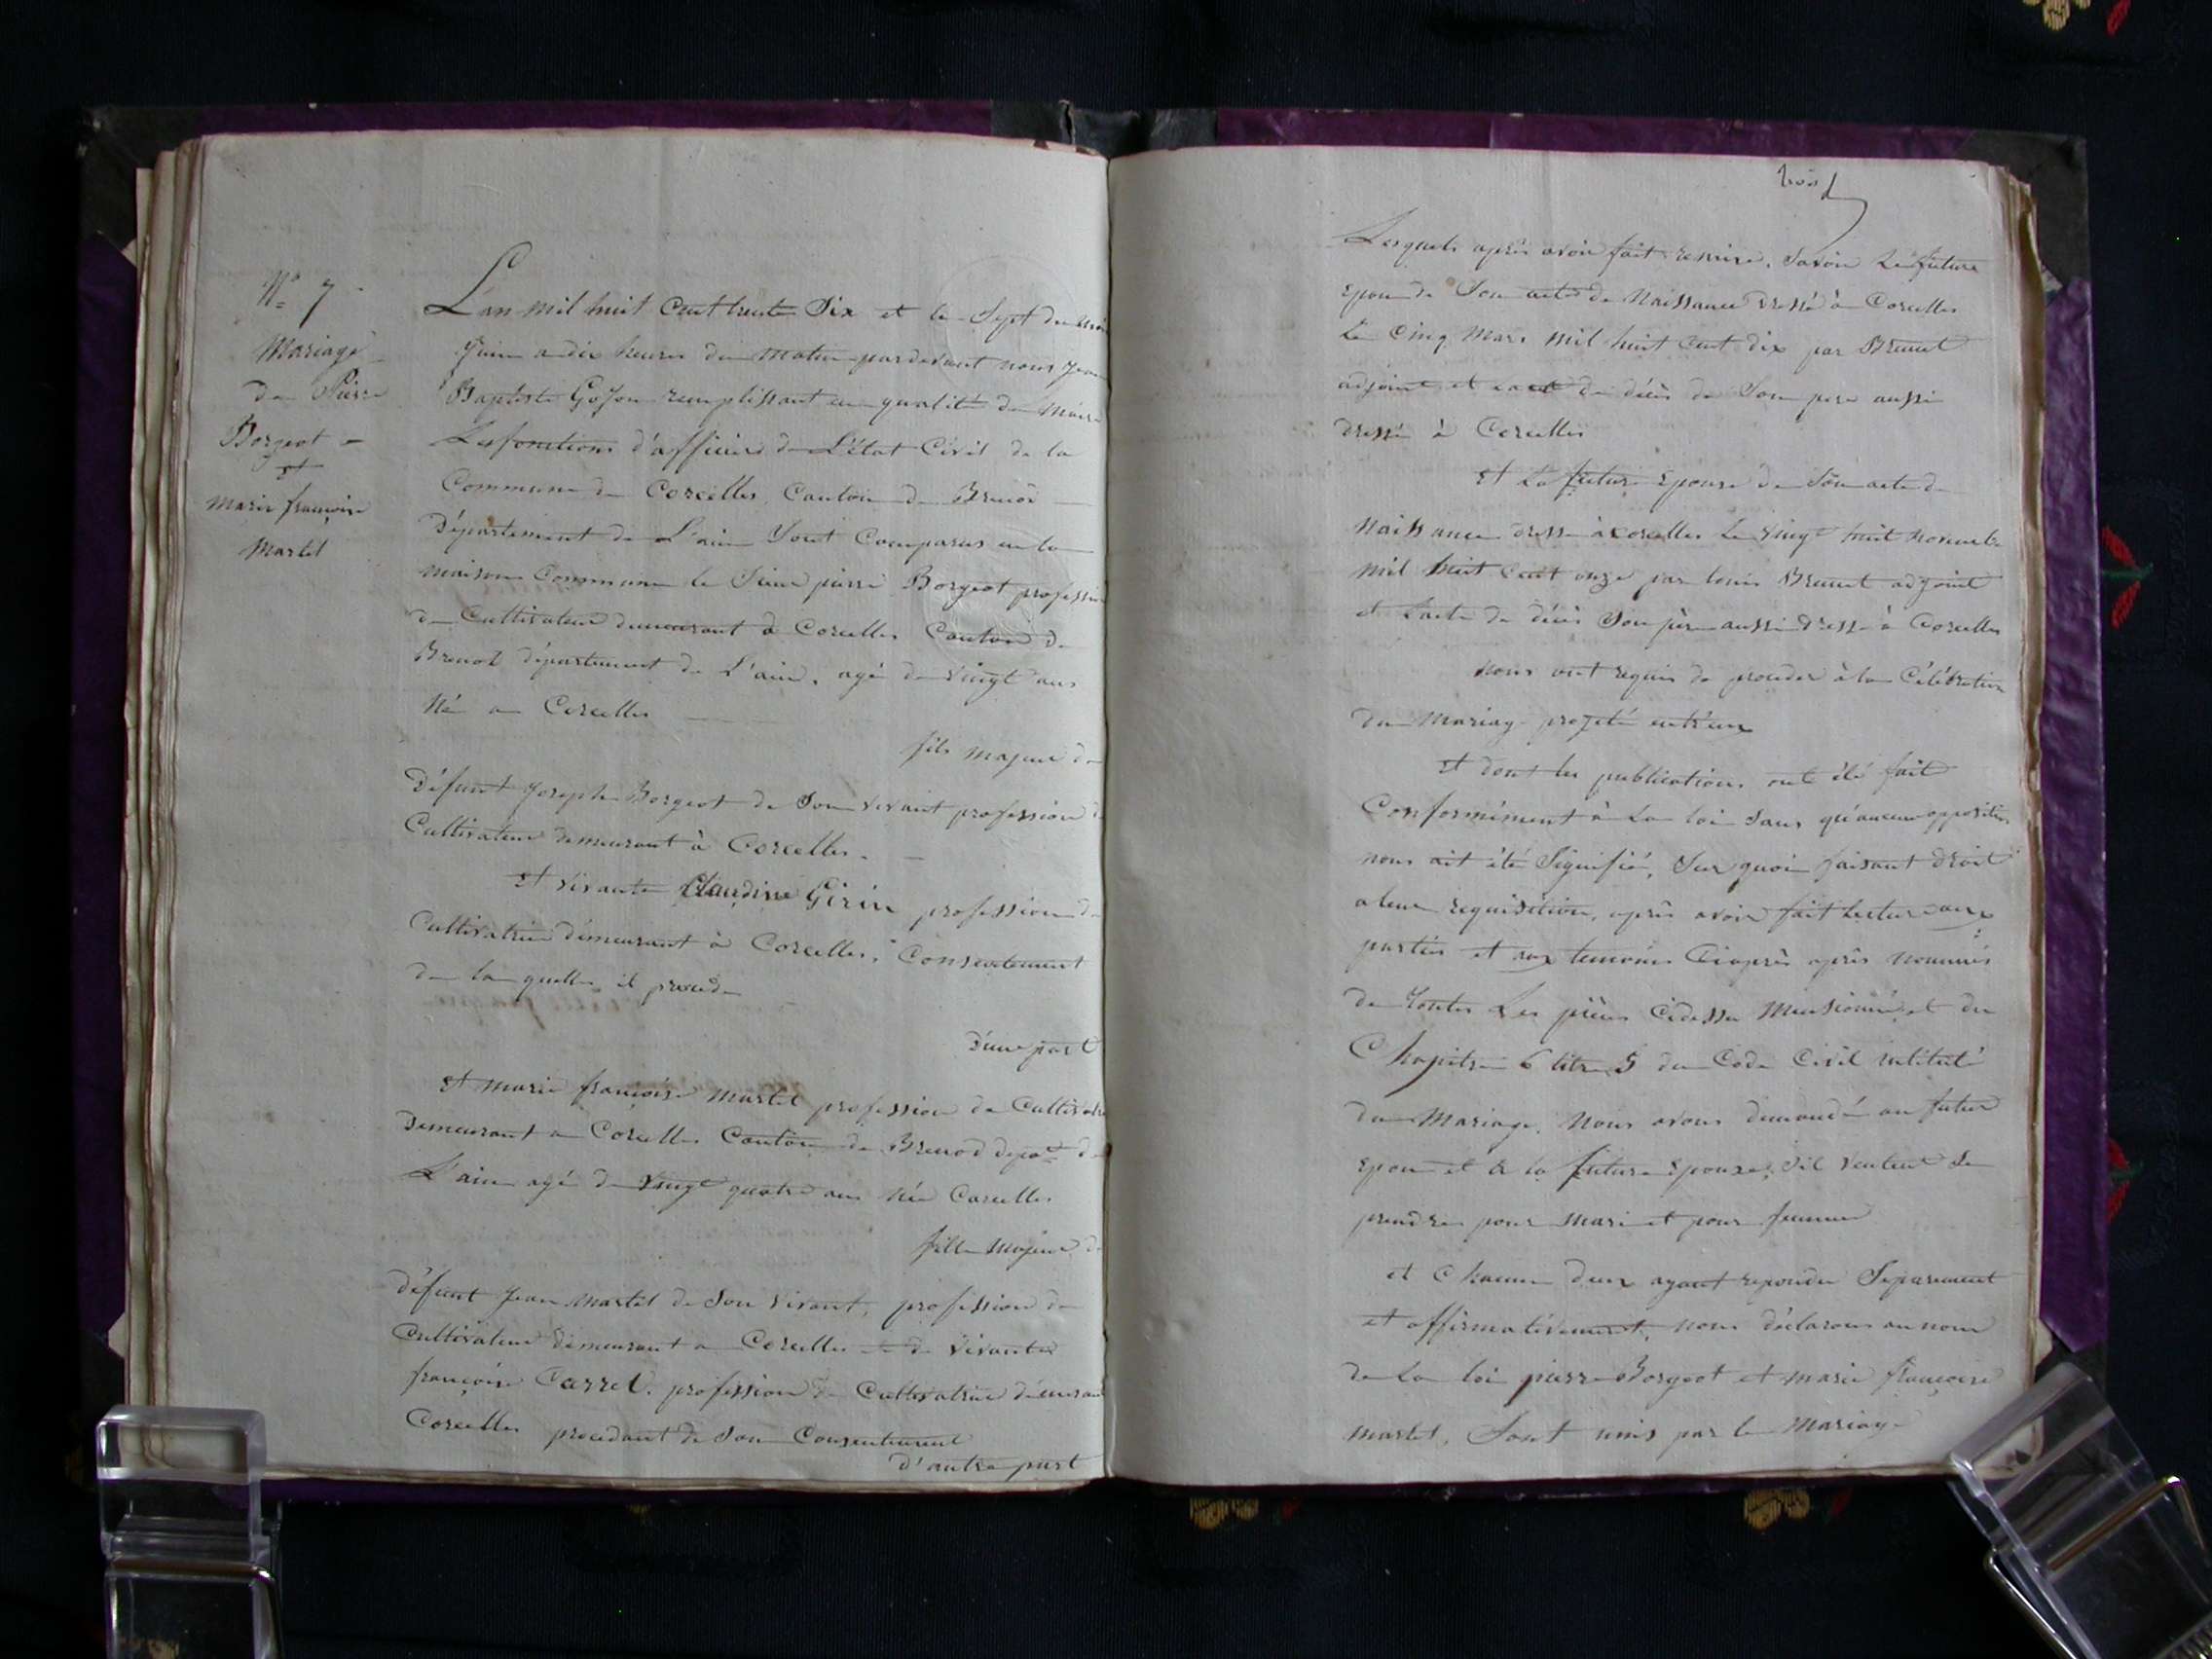 N° 7
Mariage
de Pierre
Borgeot
et
marie françoise
Martel
L'an mil huit cent trente Six et le Sept du mois
Juin a dix heures du matin pardevant nous Jean
Baptiste Goyon remplissant en qualité de Maire
Les fonctions d'officier de L'état Civil de la
Commune de Corcelles Canton de Brenod
Département de L'ain Sont Comparus en la
maison Commune le Sieur pierre Borgeot profession
de Cultivateur demeurant à Corcelles Canton de
Brenod département de L'ain, agé de vingt ans
Né a Corcelles
fils majeur de
Défunt Joseph Borgeot de Son vivant profession de
Cultivateur demeurant à Corcelles.
Et vivante Claudine Girin profession de
Cultivatrice demeurant à Corcelles, Consentement
de la quelle il procede
D'une part
Et marie françoise Martel profession de Cultivatrice
Demeurant a Corcelles Canton de Brenod depart de
L'ain agé de vingt quatre ans Née Corcelles
fille majeure de
défunt Jean Martel de Son vivant, profession de
Cultivateur demeurant a Corcelles et de vivante
françoise Carrel. profession de Cultivatrice demeurant
Corcelles procedant de Son Consentement
d'autre part
trois
Lesquels après avoir fait remise, Savoir Le future
Epoux de Son acte de Naissance dressé à Corcelles
Le Cinq Mars mil huit Cent dix par Brunet
adjoint et de décès de Son pere aussi
dressé à Corcelles
Et La future Epouse de Son acte de
Naissance dressé à Corcelles Le vingt huit novembre
mil huit Cent onze par louis Brunet adjoint
et L'acte de décès Son père aussi dressé à Corcelles
nous ont requis de proceder à la Célébration
du Mariage projeté entr'eux
Et dont les publications ont été fait
Conformément à La loi Sans qu'aucune opposition
nous ait été Signifié, Sur quoi faisant droit
a leur requisition, après avoir fait Lecture aux
parties et aux temoins Ciaprès après nommés
de toutes Les pièces Cidessu Mensionné et du
Chapitre 6 titre 5 du Code Civil intitulé
du Mariage, Nous avons demandé au futur
Epoux et à la future Epouse, S'il veulent Se
prendre pour mari et pour femme
et Chacun deux ayant repondu Separement
et affirmativement, nous déclarons au nom
de La loi pierre Borgeot et marie françoise
martel, Sont unis par le Mariage